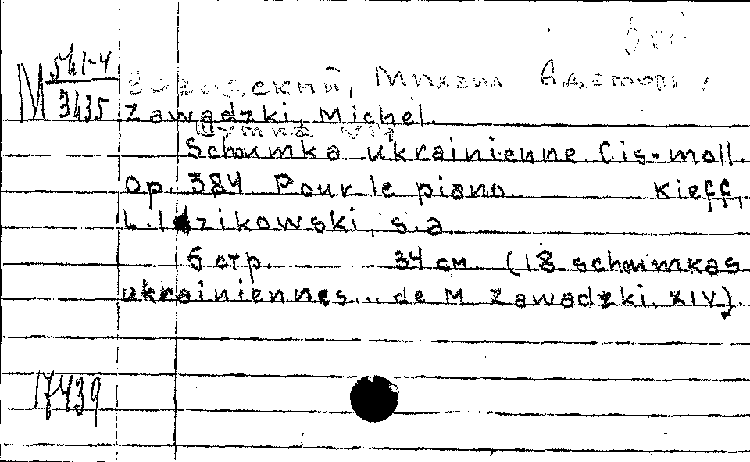 М 541-4
3435
Завадский, Михаил Адамович,
Zawadzki, Michel.
Шумка XIV
Schoumka ukrainienne Cis-moll.
Op. 384 Pour le piano. Kieff,
L. Idzikowski, s.a
5 стр. 34 см (18 schoumkas
ukrainiennes... de M. Zawadzki. XIV).
17439